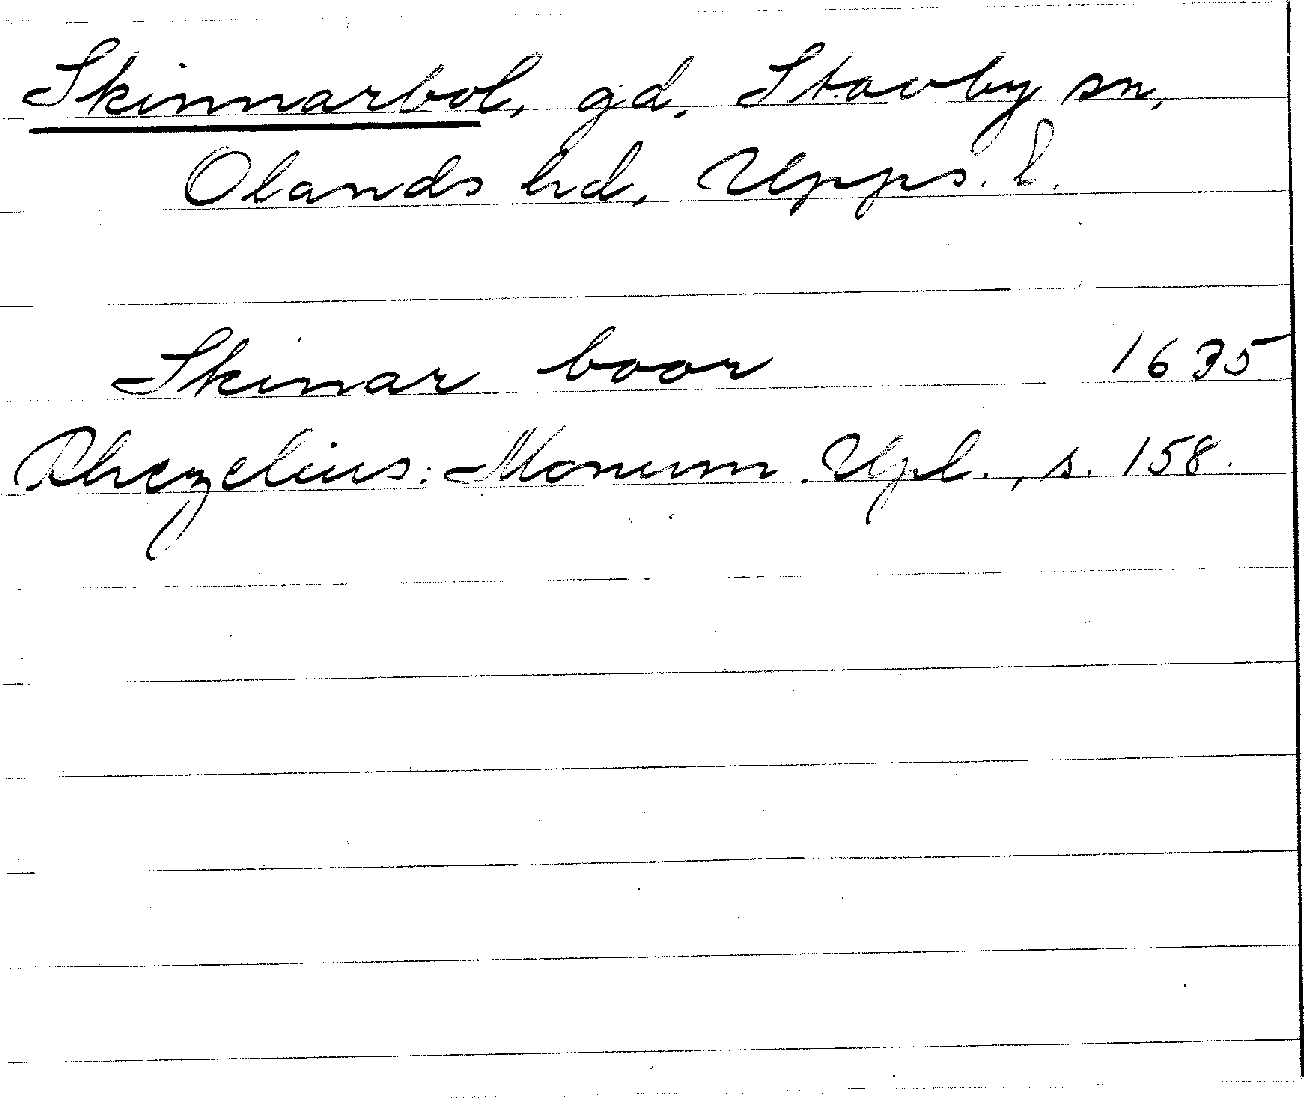 Skinnarbol, gd, Stavby sn,
Olands hd, Upps. l.
Skinar boor 1635
Rhezelius: Monum. Upl., s. 158.